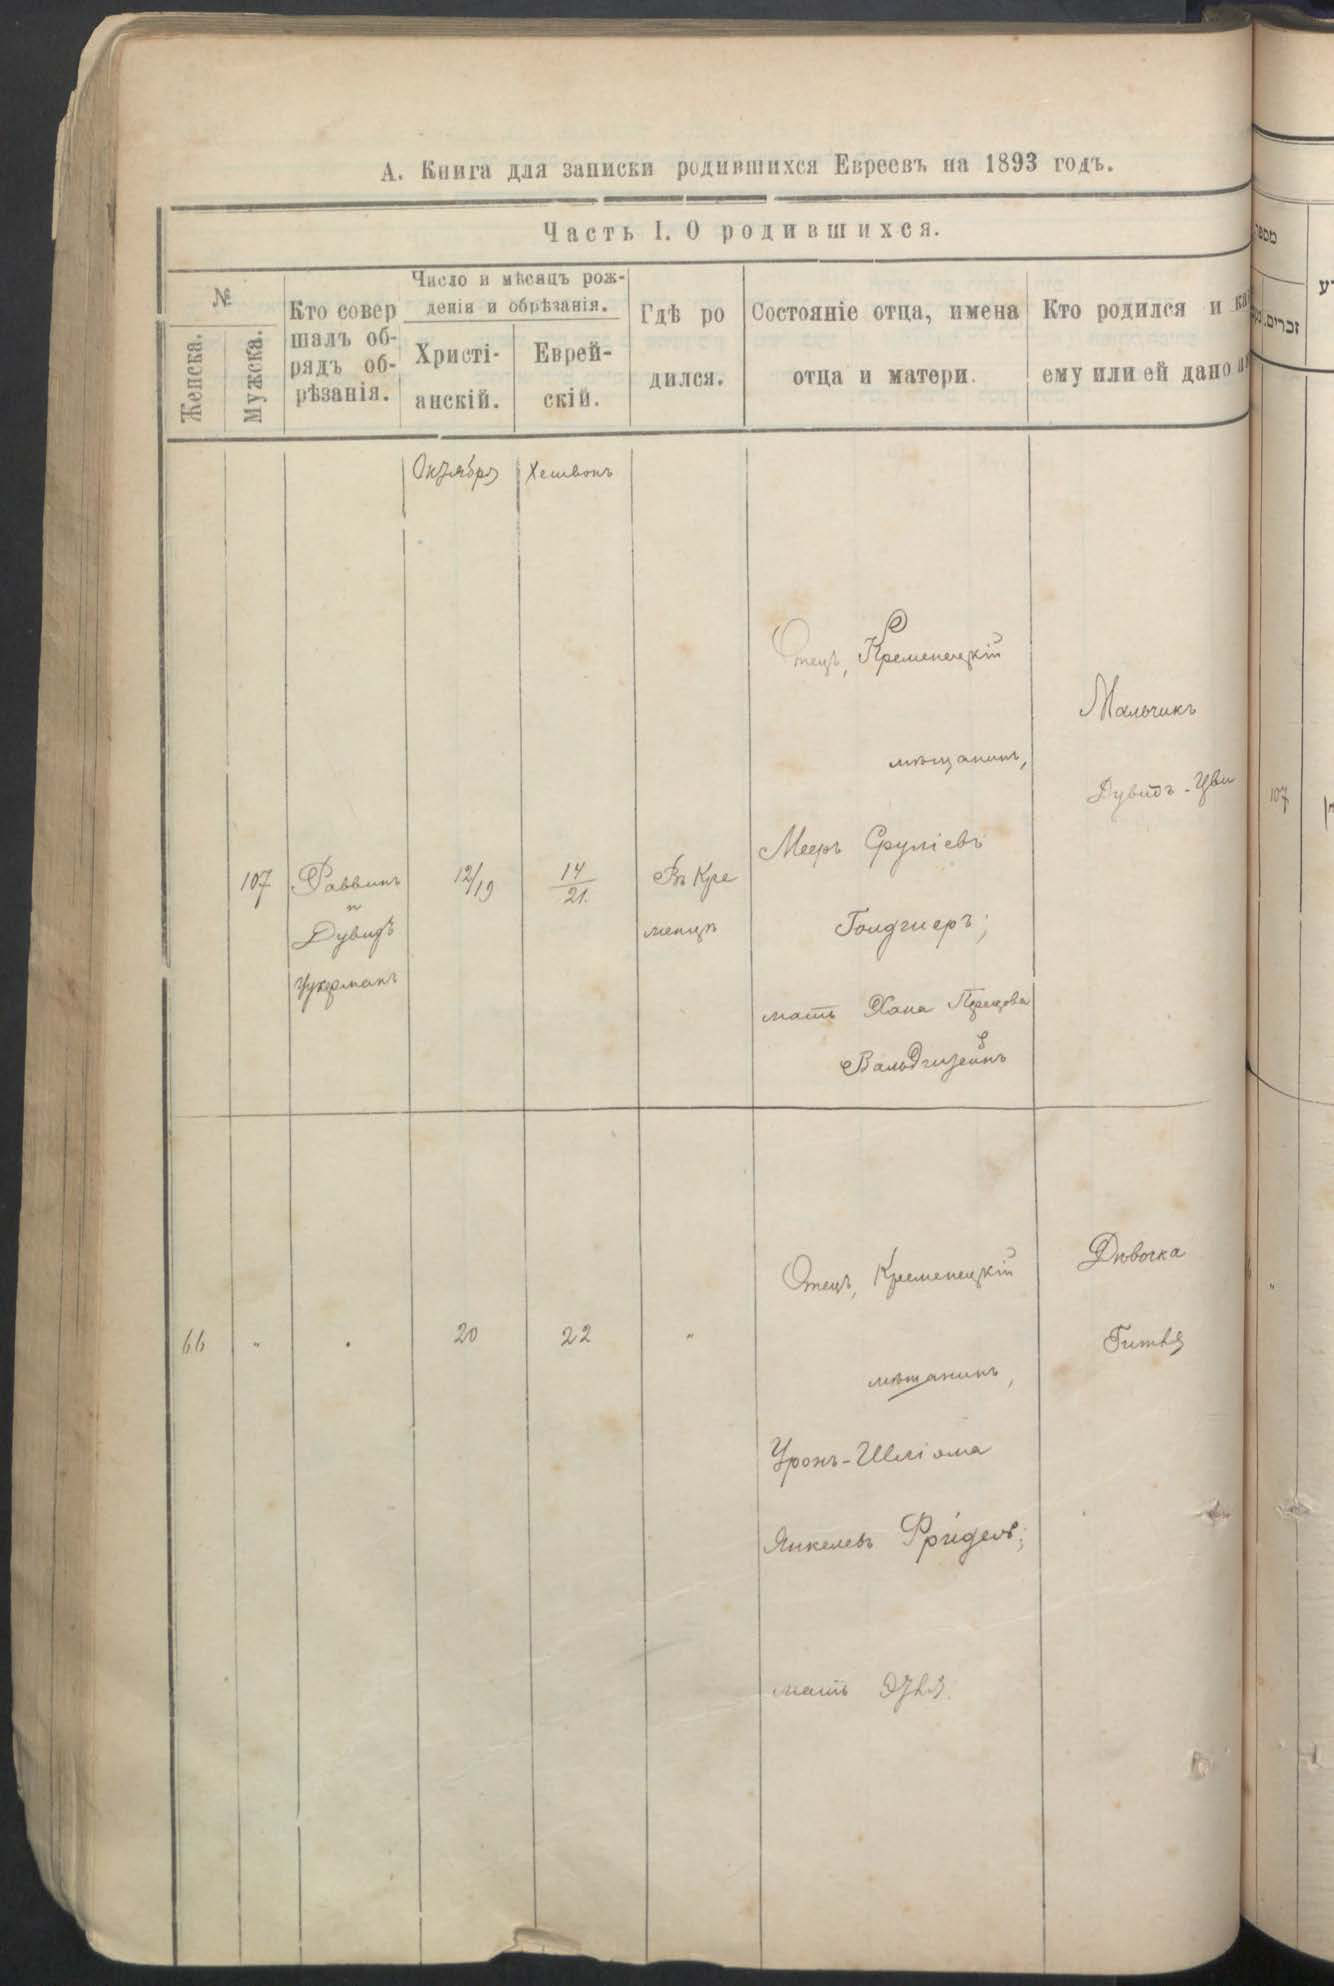 А. Книга для записки родившихся Евреевъ на 1893 годъ.
Часть I. О родившихся.
№
Женска.
Мужска.
Кто совер
шалъ об-
рядъ об-
рѣзанія.
Число и мѣсяцъ рож-
денія и обрѣзанія.
Христі-
анскій.
Еврей-
скій.
Гдѣ ро
дился.
Состояніе отца, имена
отца и матери.
Кто родился и
ему или ей дано
Октября
Хешвонъ
107
Раввинъ
и
Дувидъ
Цукерманъ
12/19
14
21.
Въ Кре
менцѣ
Отецъ, Кременецкій
мѣщанинъ,
Мееръ Сруліевъ
мать Хана
Мальчикъ
Дувидъ-Цви
66
"
"
20
22
"
Отецъ, Кременецкій
мѣщанинъ,
Уронъ-Шліома
Янкелевъ Фридель;
мать
Дѣвочка
Гитля
מספר
זכרים.
107
"